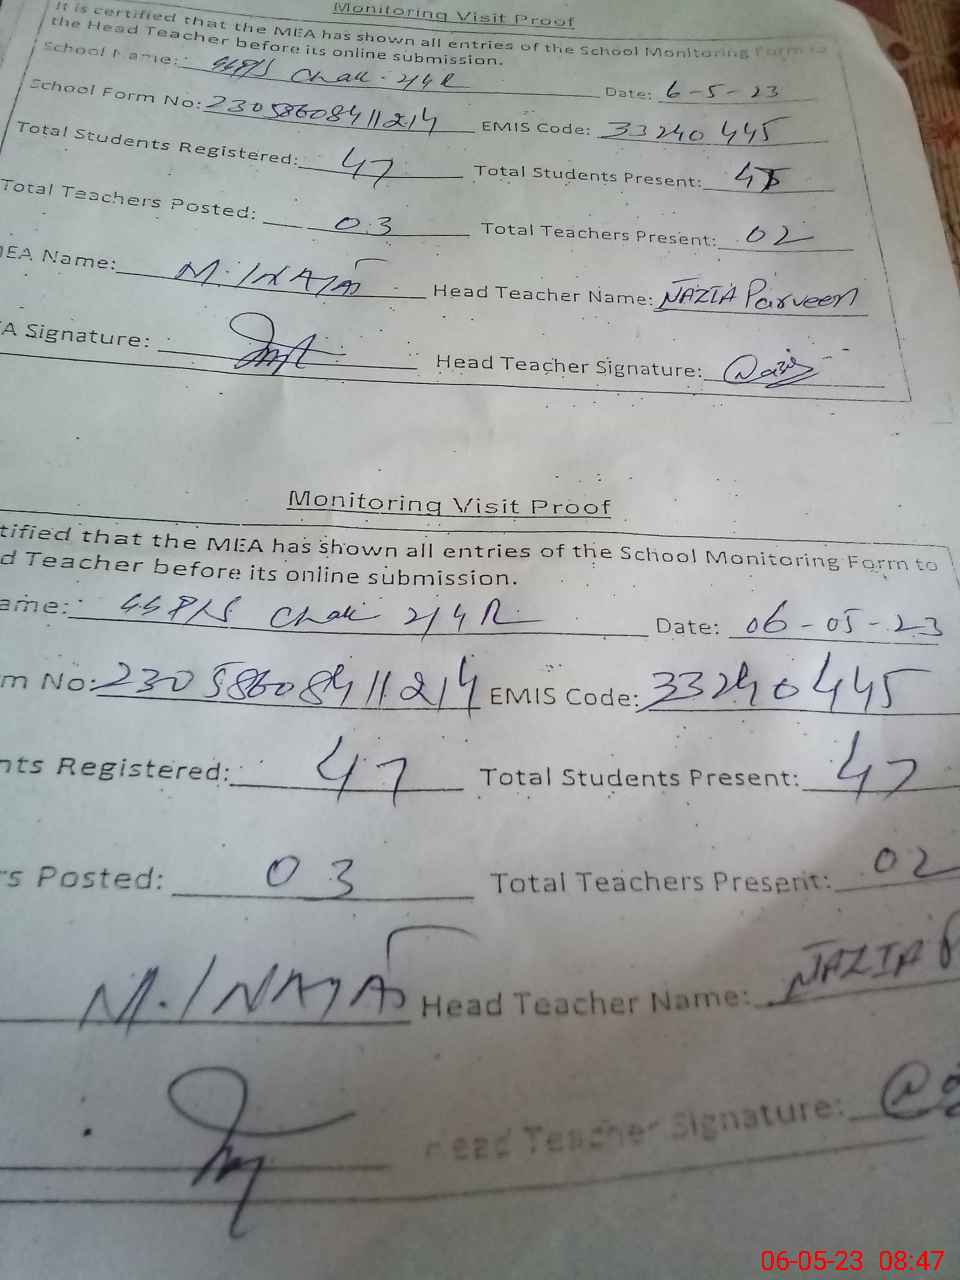 Monitoring Visit Proof
It is certified that the MEA has shown all entries of the School Monitoring Form to
the Head Teacher before its online submission.
School Name: GGP/S Chak 2/4R Date: 6-5-23
School Form No: 23058608411214 EMIS Code: 33240445
Total Students Registered: 47 Total Students Present:
Total Teachers Posted: 03 Total Teachers Present: 02
MEA Name: M. INAYAT Head Teacher Name: NAZIA Parveen
A Signature: Head Teacher Signature: Nazia
Monitoring Visit Proof
tified that the MEA has shown all entries of the School Monitoring Form to
d Teacher before its online submission.
ame: GGP/S Chak 2/4R Date: 06-05-23
m No: 23058608411214 EMIS Code: 33240445
nts Registered: 47 Total Students Present: 47
rs Posted: 03 Total Teachers Present: 02
M. INAYAT Head Teacher Name: NAZIA P
Head Teacher Signature:
06-05-23 08:47